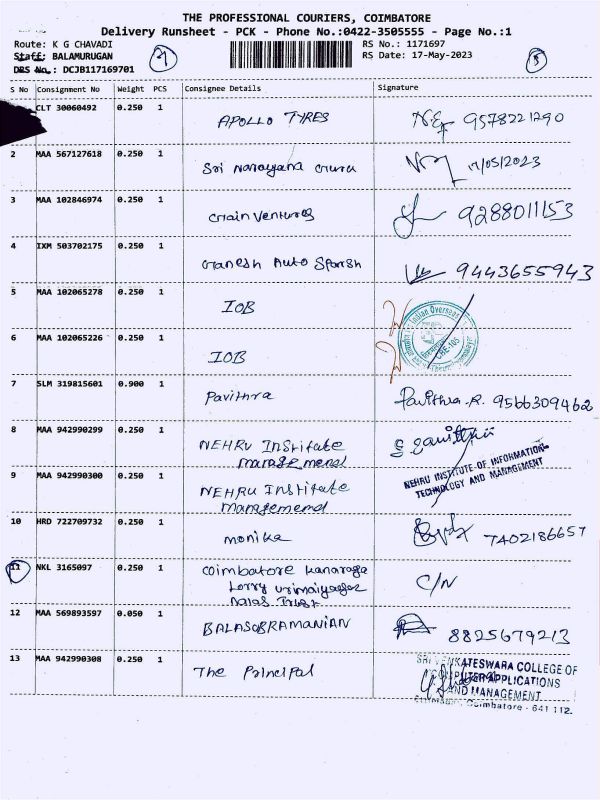 THE PROFESSIONAL COURIERS, COIMBATORE
Delivery Runsheet - PCK - Phone No.:0422-3505555 - Page No.:1
Route: K G CHAVADI RS No.: 1171697
Staff: BALAMURUGAN RS Date: 17-May-2023
DRS No.: DCJB117169701
S No Consignment No Weight PCS Consignee Details Signature
CLT 30060492 0.250 1 APOLLO TYRES 9578221290
2 MAA 567127618 0.250 1 Sri Narayana Guru 17/05/2023
3 MAA 102846974 0.250 1 Chain Ventures 9288011153
4 IXM 503702175 0.250 1 Ganesh Auto 9443655943
5 MAA 102065278 0.250 1 IOB
Indian Overseas
CBE-105
6 MAA 102065226 0.250 1 IOB
7 SLM 319815601 0.900 1 Pavithra Pavithra.R. 9566309462
8 MAA 942990299 0.250 1 NEHRU Institute
management
NEHRU INSTITUTE OF INFORMATION
TECHNOLOGY AND MANAGEMENT
9 MAA 942990300 0.250 1 NEHRU Institute
management
10 HRD 722709732 0.250 1 monika 7402186657
11 NKL 3165097 0.250 1 Coimbatore
Lorry
Trust
C/N
12 MAA 569893597 0.050 1 BALASOBRAMANIAN 8825679213
13 MAA 942990308 0.250 1 The Principal
SRI VENKATESWARA COLLEGE OF
COMPUTER APPLICATIONS
AND MANAGEMENT
Coimbatore - 641 112.